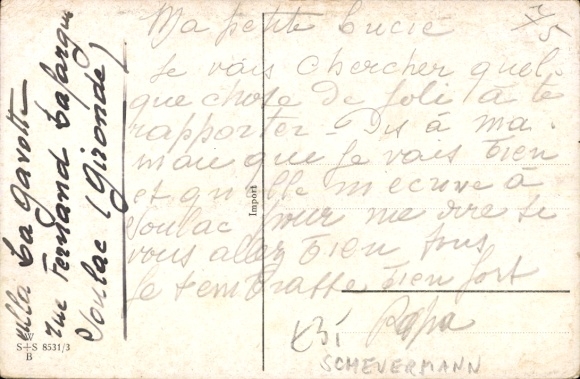 Ma petite Lucie
Je vais chercher quel-
que chose de joli à te
rapporter - Dis à ma-
man que je vais bien
et qu'elle m'ecrive à
Soulac pour me dire si
vous allez bien tous
Je t'embrasse bien fort
Papa
villa La Gavotte
rue Fernand Lafargue
Soulac (Gironde)
Import
W
S+S 8531/3
B
SCHEVERMANN